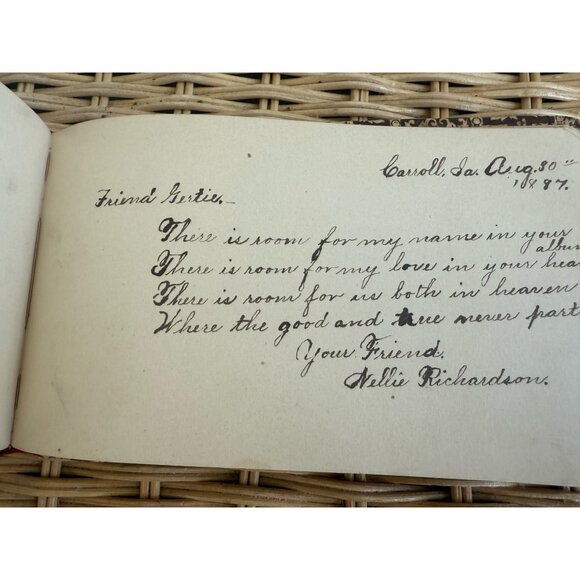 Carroll, Ia. Aug. 30"
1887.
Friend Gertie,—
There is room for my name in your
album
There is room for my love in your hea
There is room for us both in heaven
Where the good and true never part
Your Friend.
Nellie Richardson.